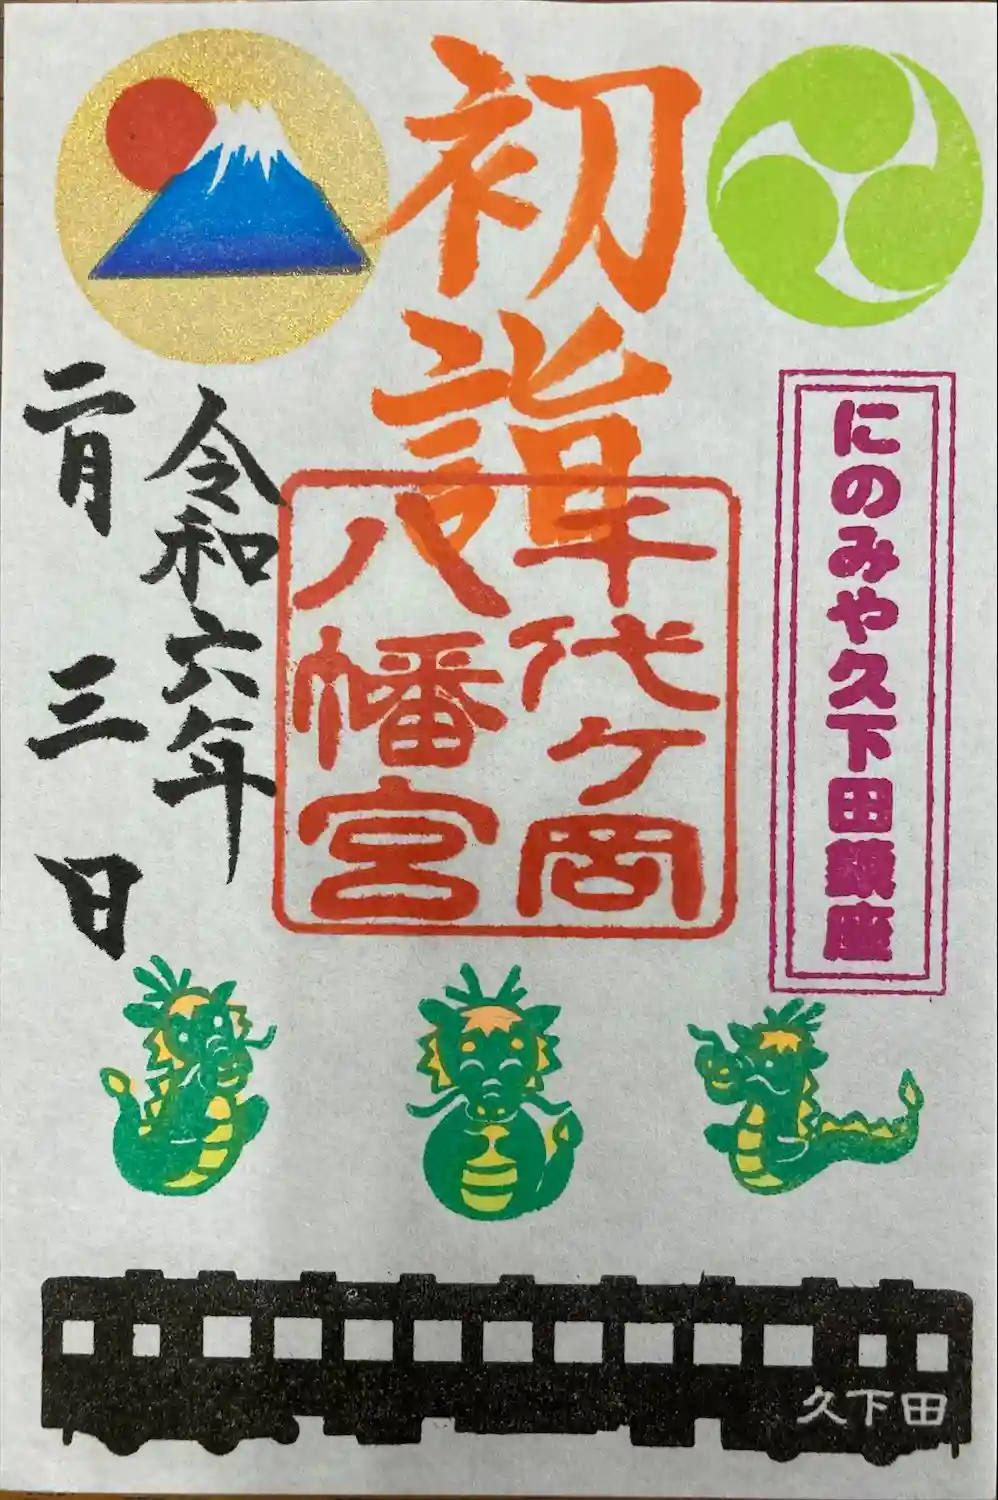 にのみや久下田鎮座
初詣
千代ヶ岡
八幡宮
令和六年
二月三日
久下田